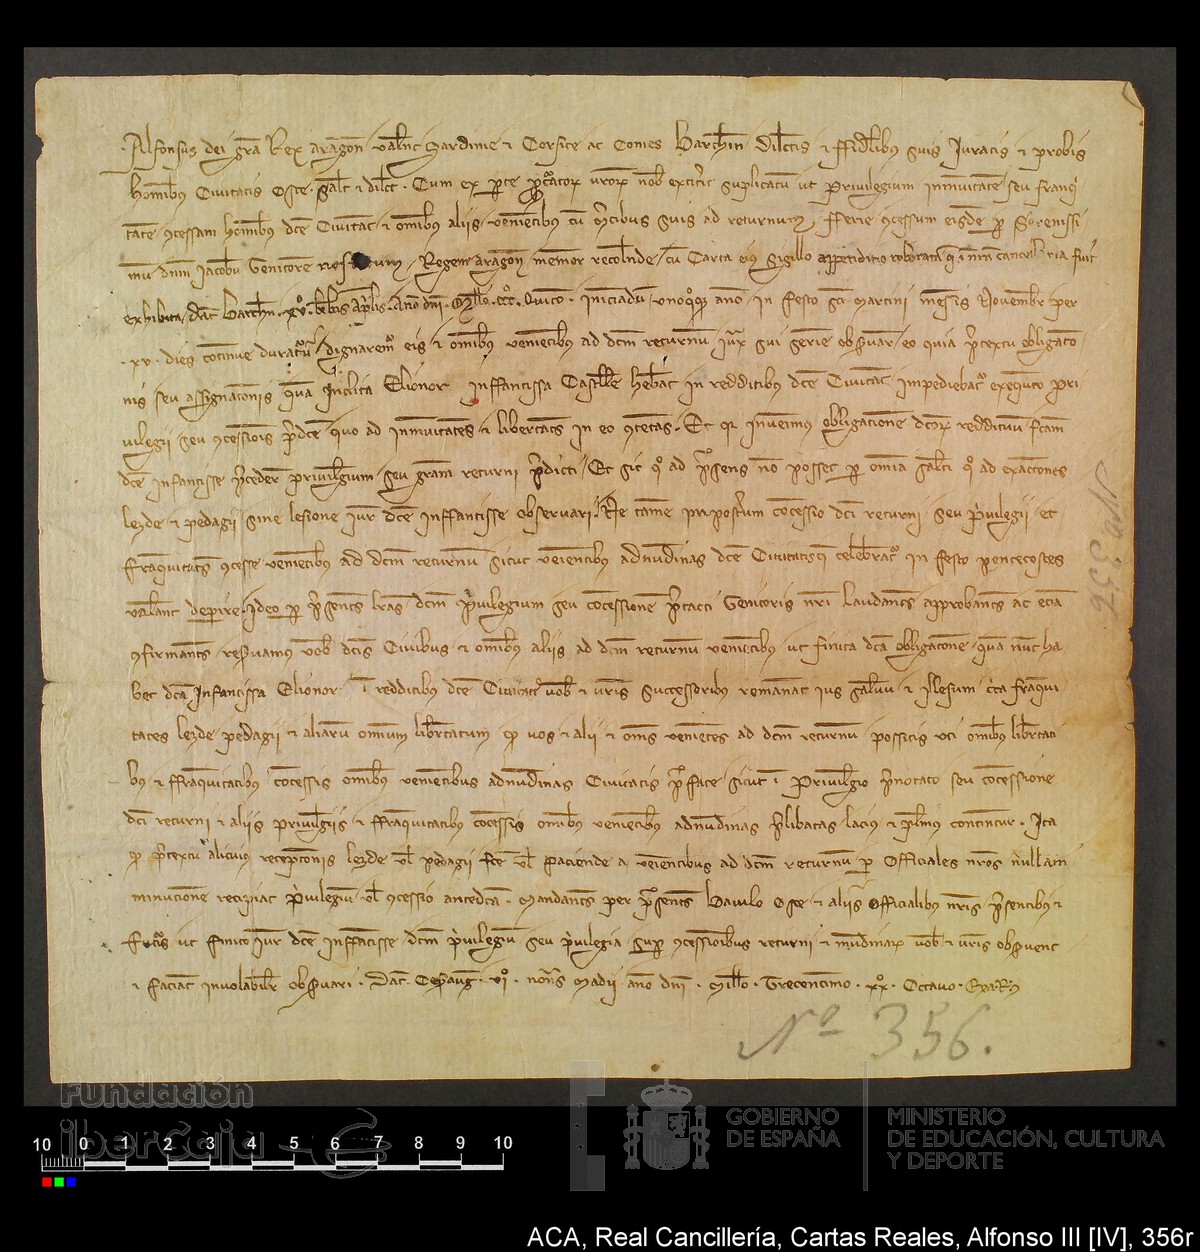 Alfonsus dei gra Rex aragon valenc Sardinie et Corsice ac Comes Barchn Dilectis et ffidelibus suis Iuratis et probis
hominibus Civitatis Osce salt et dilect. Cum ex parte vrorum nob extiterit supplicatum ut Privilegium inmunitatem seu franqui
tatem concessam hominibus dce Civitat et omnibus aliis venientibus cum mercibus suis ad returnum fferie concessum eisdem per Serenissi
mum dnm Iacobum Genitorem nostrum Regem aragon memor recolende cum Carta eius Sigillo appenditio roborata que in nra cancell fuit
exhibita dat Barchn Aprilis Anno dni Millo CCC Quinto iniciadum unoquoque anno in festo sci martini mensis Novembr per
xv dies continue duraturum dignaremur eis et omnibus venientibus ad dcm returnum iux sui seriem observar eo quia pretextu obligatio
nis seu assignationis quam Inclita Elionor Inffantissa Castelle in redditibus dce Civitat impediebatur executio pri
vilegii seu concessionis predce quo ad inmunitates et libertates in eo contentas. Et quia invenimus obligationem dcorum reddituum fcam
dce infantisse precedere privilegium seu gram returni predicti Et sic quo ad presens non posset per omnia salti quo ad exactiones
lezde et pedagii sine lesione iur dce inffantisse observari. Ne tamen propositum concessio dci returni seu privilegii et
franquitates concesse venientibus ad dcm returnum sicut venientibus ad nundinas dce Civitatis que celebratur in festo pentecostes
valeant deperire. Ideo per presentes lras dcm privilegium seu concessionem Genitoris nri laudantes approbantes ac etiam
confirmantes reservamus vob dcis Civibus et omnibus aliis ad dcm returnum venientibus ut finita dca obligatione quam nunc ha
bet dca Infantissa Elionor in redditibus dce Civitatis vob et vris successoribus remaneat ius salvum et illesum circa franqui
tates lezde pedagii et aliarum omnium libertatum quod vos et alii et oms venientes ad dcm returnum possitis uti omnibus libertati
bus et ffranquitatibus concessis omnibus venientibus ad nundinas Civitatis prefate sicut in Privilegio prenotato seu concessione
dci returni et aliis privilegiis et ffranquitatibus concessis omnibus venientibus ad nundinas prelibatas lacius et plenius continetur. Ita
quod pretextu alicuius receptionis lezde vel pedagii fce vel faciende a venientibus ad dcm returnum per Officiales nros nullam
minucionem recipiat privilegium vel concessio antedca. Mandantes per presentes Baiulo Osce et aliis Officialibus nris presentibus et
futuris ut finito iur dce inffantisse dcm privilegium seu privilegia super concessionibus returni et nundinarum vob et vris observent
et faciant inviolabiliter observari. Dat Cesaraug. vi nonas Madii anno dni Millo Trecentimo xx Octavo.
Nº 356.
Nº 356
Fundación
ibercaja
10 0 1 2 3 4 5 6 7 8 9 10
GOBIERNO
DE ESPAÑA
MINISTERIO
DE EDUCACIÓN, CULTURA
Y DEPORTE
ACA, Real Cancillería, Cartas Reales, Alfonso III [IV], 356r